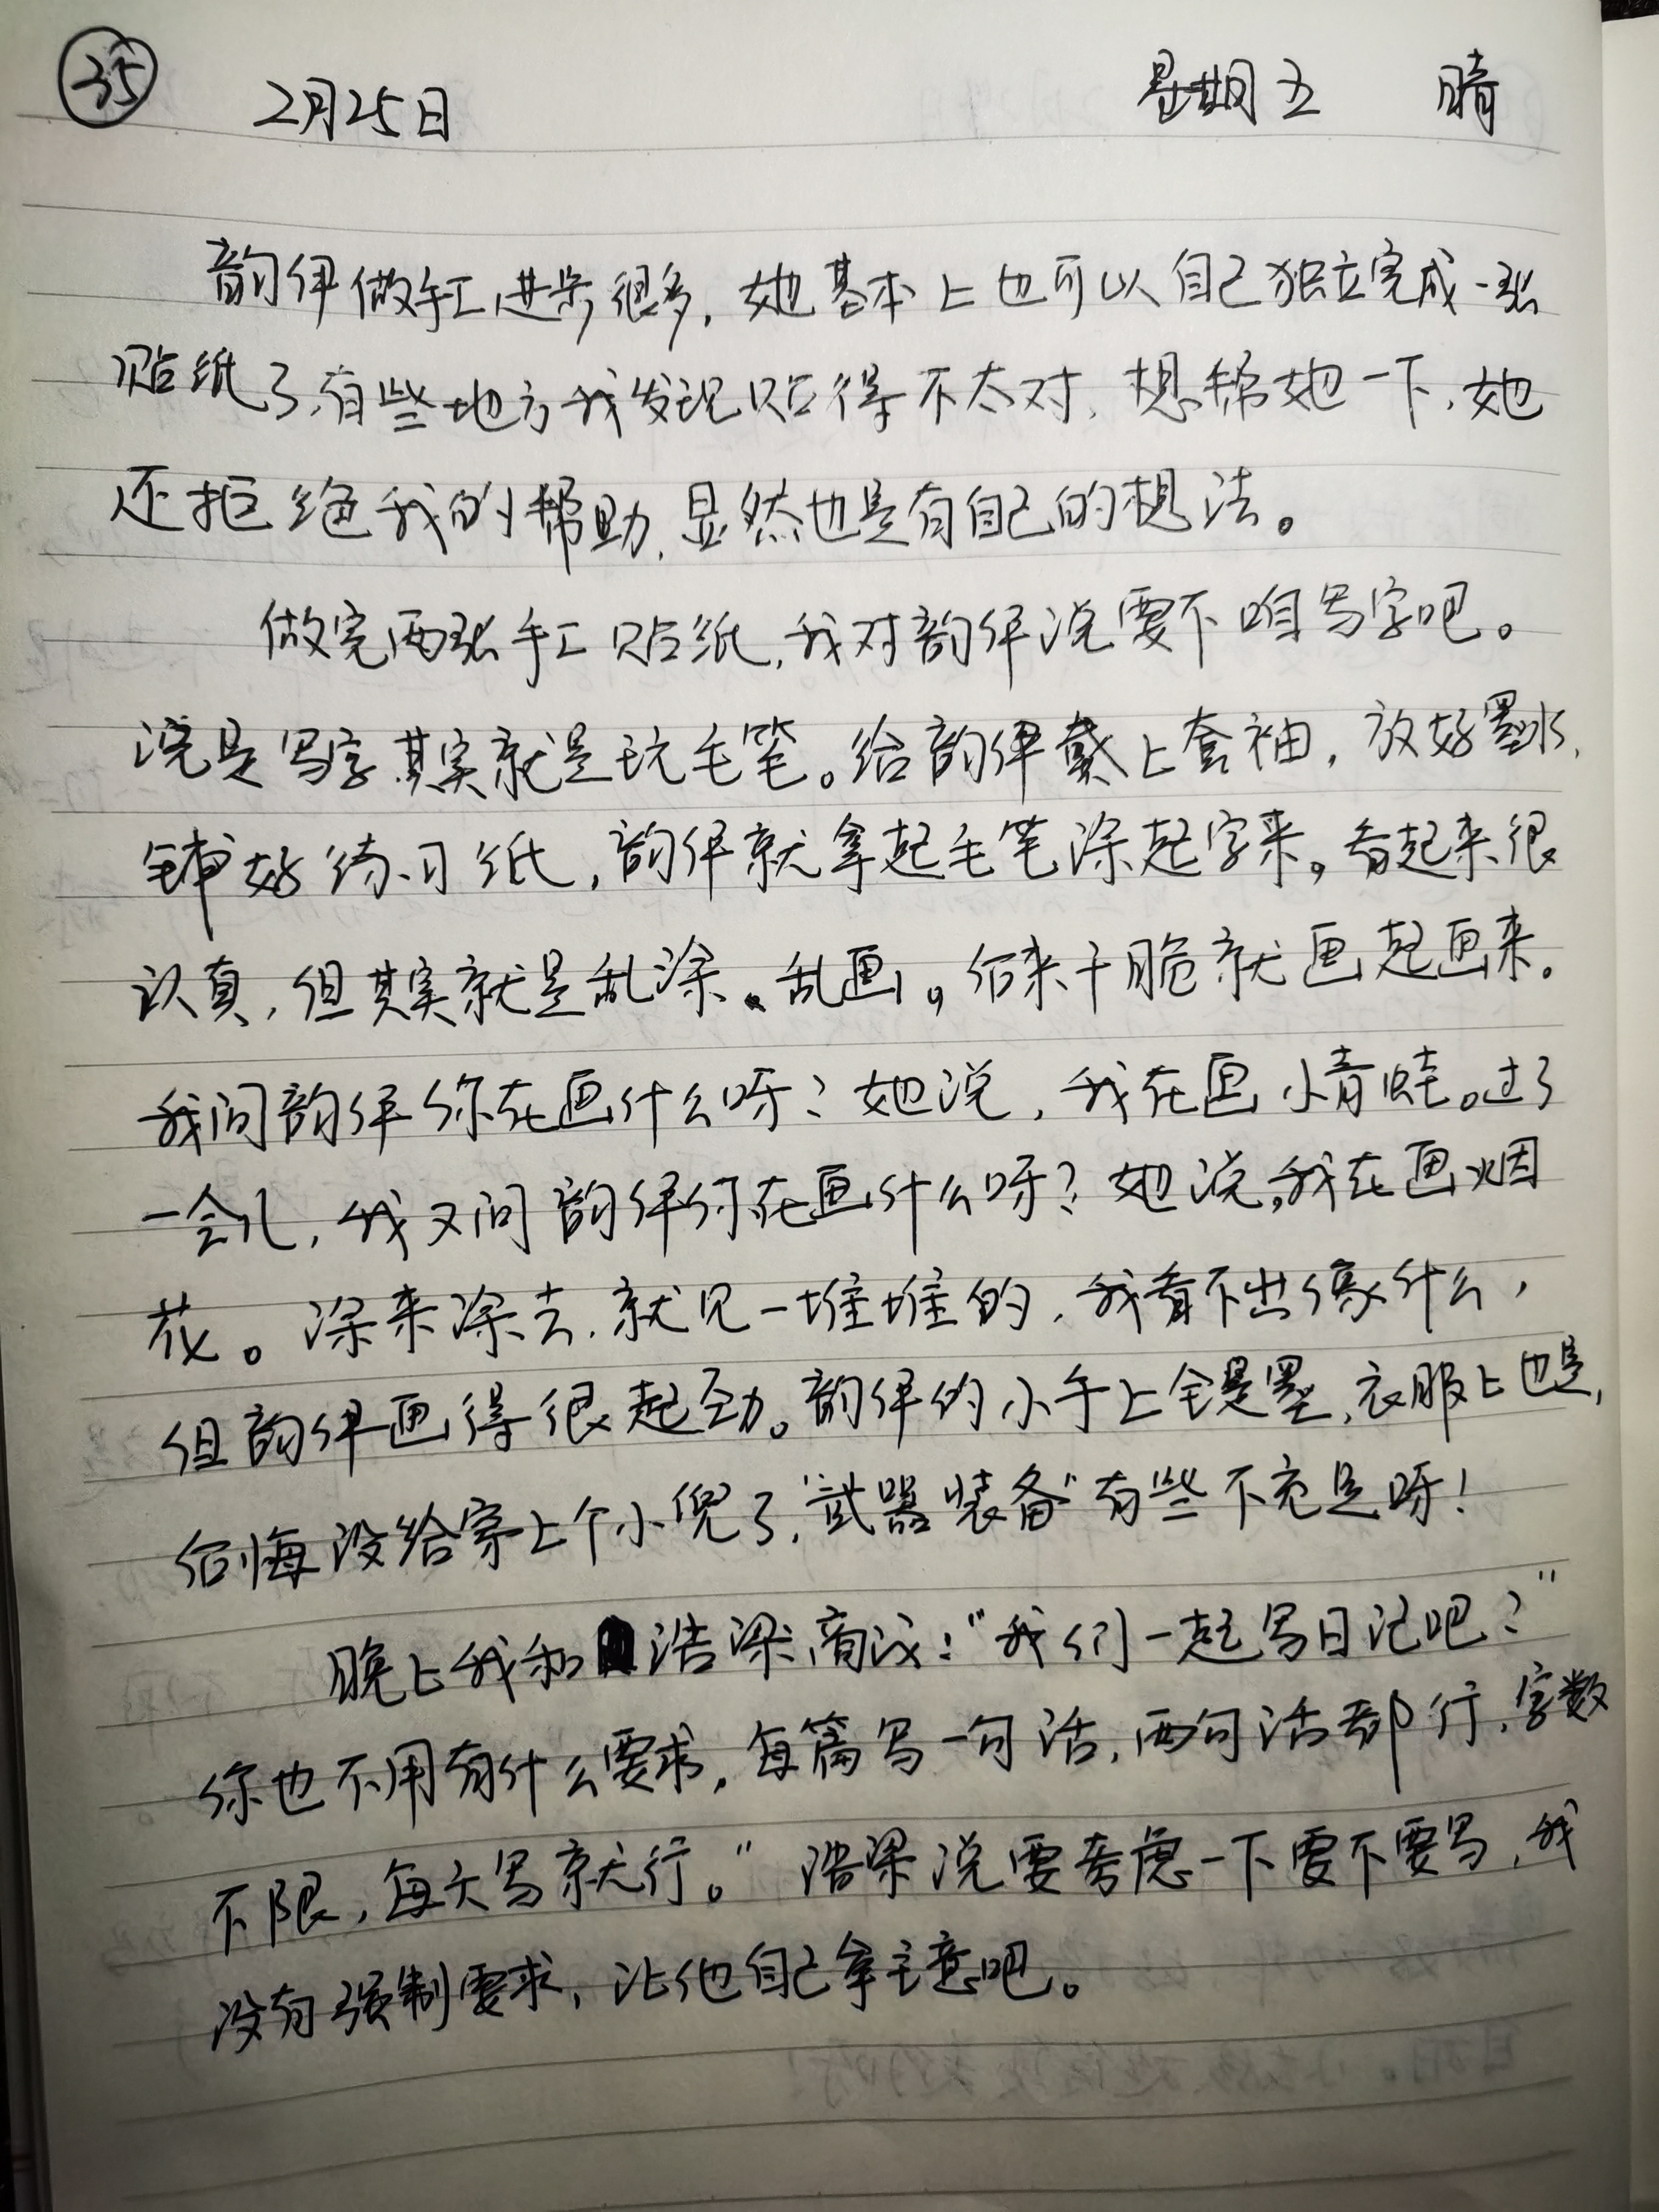 35 2月25日 星期五 晴
韵伊做手工进步很多，她基本上也可以自己独立完成一张
贴纸了，有些地方我发现贴得不太对，想帮她一下，她
还拒绝我的帮助，显然也是有自己的想法。
做完两张手工贴纸，我对韵伊说要不咱写字吧。
说是写字其实就是玩毛笔。给韵伊戴上套袖，放好墨水，
铺好练习纸，韵伊就拿起毛笔涂起字来。看起来很
认真，但其实就是乱涂、乱画。后来干脆就画起画来。
我问韵伊你在画什么呀？她说，我在画小青蛙。过了
一会儿，我又问韵伊你在画什么呀？她说，我在画烟
花。涂来涂去，就见一堆堆的，我看不出像什么，
但韵伊画得很起劲。韵伊的小手上全是墨，衣服上也是，
后悔没给穿上个小倪了，“武器装备”有些不充足呀！
晚上我和浩梁商议：“我们一起写日记吧？”
你也不用有什么要求，每篇写一句话，两句话都行，字数
不限，每天写就行。”浩梁说要考虑一下要不要写，我
没有强制要求，让他自己拿主意吧。